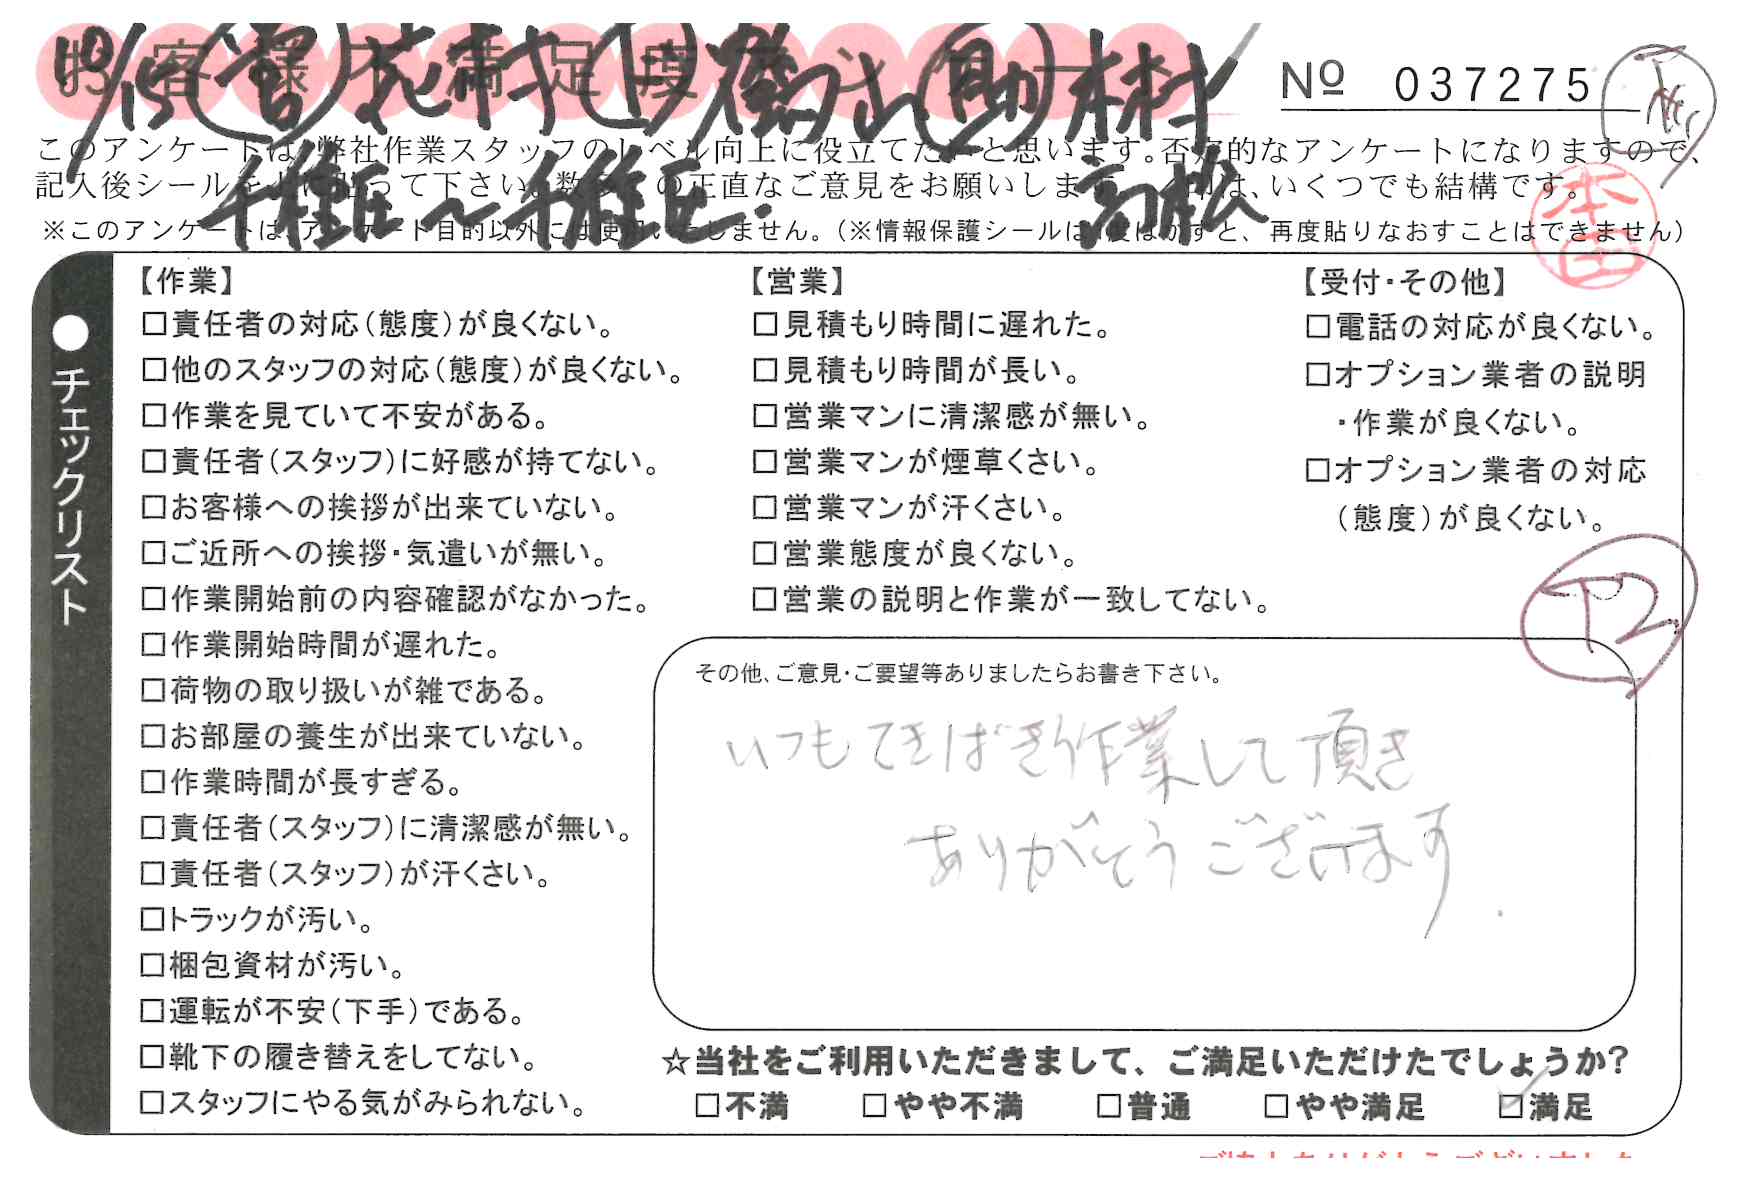 お客様不満足度アンケート
10/15 (営) 花村 (1) 横山 (助) 木村
№ 037275
このアンケートは、弊社作業スタッフのレベル向上に役立てたいと思います。否定的なアンケートになりますので、
千種区〜千種区. 高松
記入後シールを上に貼って下さい。数多くの正直なご意見をお願いします。 は、いくつでも結構です。
※このアンケートは、アンケート目的以外には使用いたしません。(※情報保護シールは1度はがすと、再度貼りなおすことはできません)
本田
●チェックリスト
【作業】
□責任者の対応(態度)が良くない。
□他のスタッフの対応(態度)が良くない。
□作業を見ていて不安がある。
□責任者(スタッフ)に好感が持てない。
□お客様への挨拶が出来ていない。
□ご近所への挨拶・気遣いが無い。
□作業開始前の内容確認がなかった。
□作業開始時間が遅れた。
□荷物の取り扱いが雑である。
□お部屋の養生が出来ていない。
□作業時間が長すぎる。
□責任者(スタッフ)に清潔感が無い。
□責任者(スタッフ)が汗くさい。
□トラックが汚い。
□梱包資材が汚い。
□運転が不安(下手)である。
□靴下の履き替えをしてない。
□スタッフにやる気がみられない。
【営業】
□見積もり時間に遅れた。
□見積もり時間が長い。
□営業マンに清潔感が無い。
□営業マンが煙草くさい。
□営業マンが汗くさい。
□営業態度が良くない。
□営業の説明と作業が一致してない。
【受付・その他】
□電話の対応が良くない。
□オプション業者の説明
・作業が良くない。
□オプション業者の対応
(態度)が良くない。
その他、ご意見・ご要望等ありましたらお書き下さい。
いつもてきぱき作業して頂き
ありがとうございます.
☆当社をご利用いただきまして、ご満足いただけたでしょうか?
□不満 □やや不満 □普通 □やや満足 ☑満足